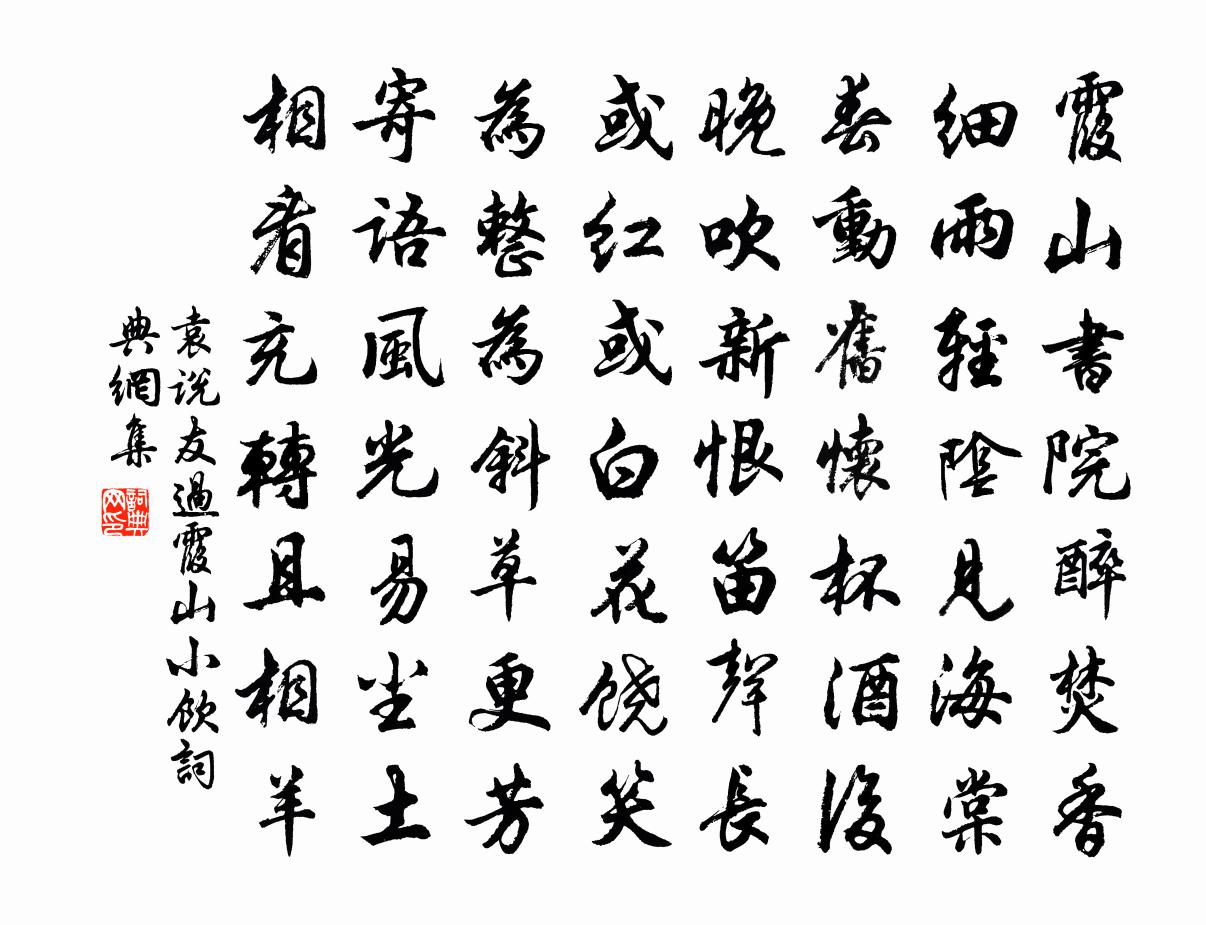 霞山書院醉焚香
細雨輕陰見海棠
春動舊懷杯酒後
晚吹新恨笛聲長
或紅或白花饒笑
為整為斜草更芳
寄語風光易尘土
相看充轉且相羊
袁说友過霞山小飲詞
典網集
詞典网印